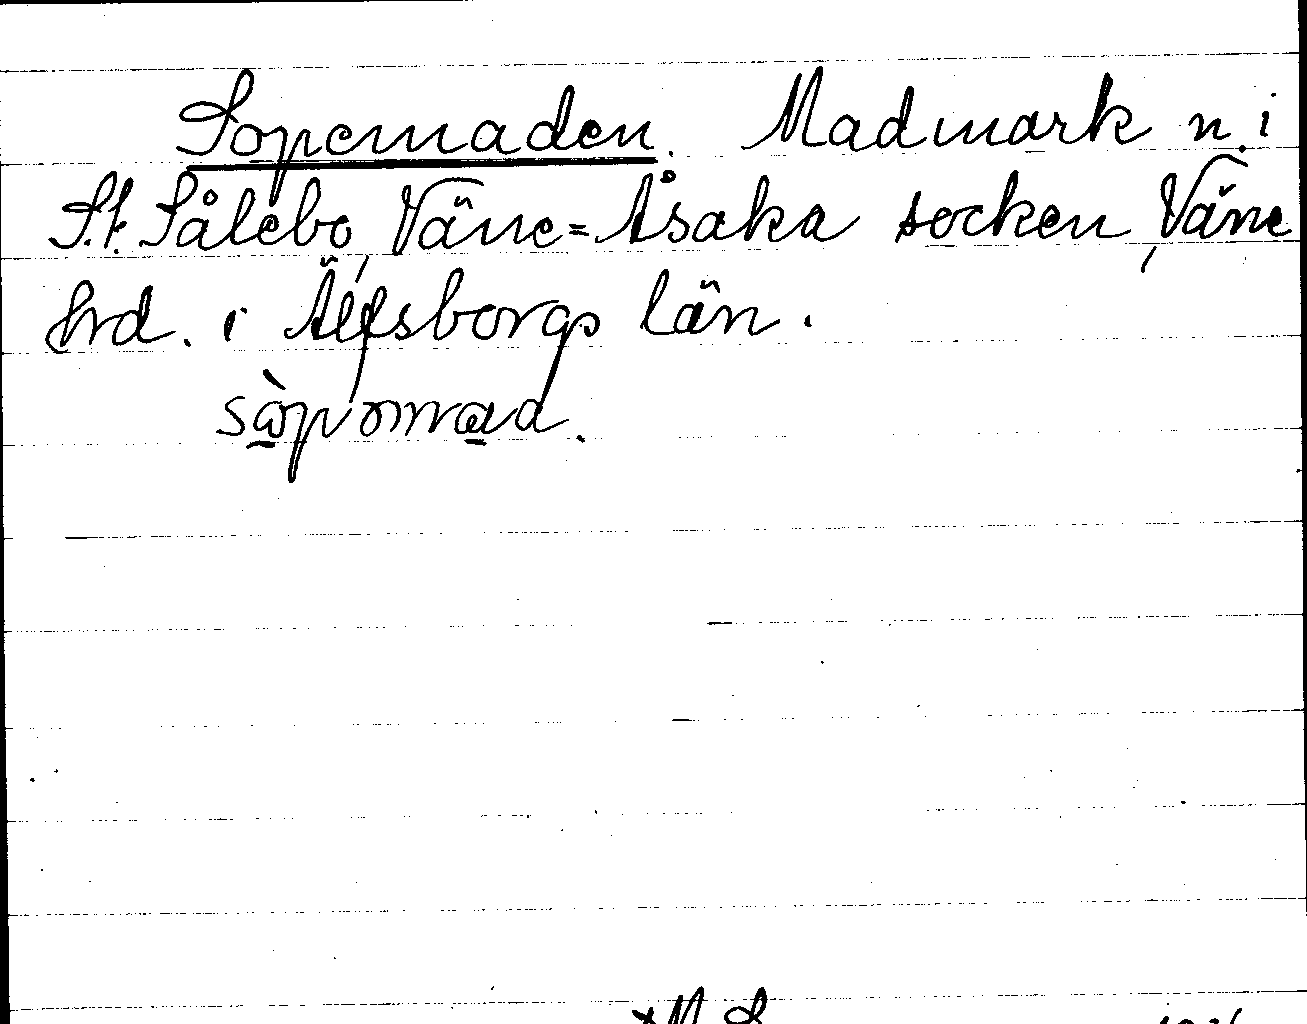 Sopemaden. Madmark n. i
St. Sålebo, Väne=Åsaka socken, Väne
hrd. i Älfsborgs län.